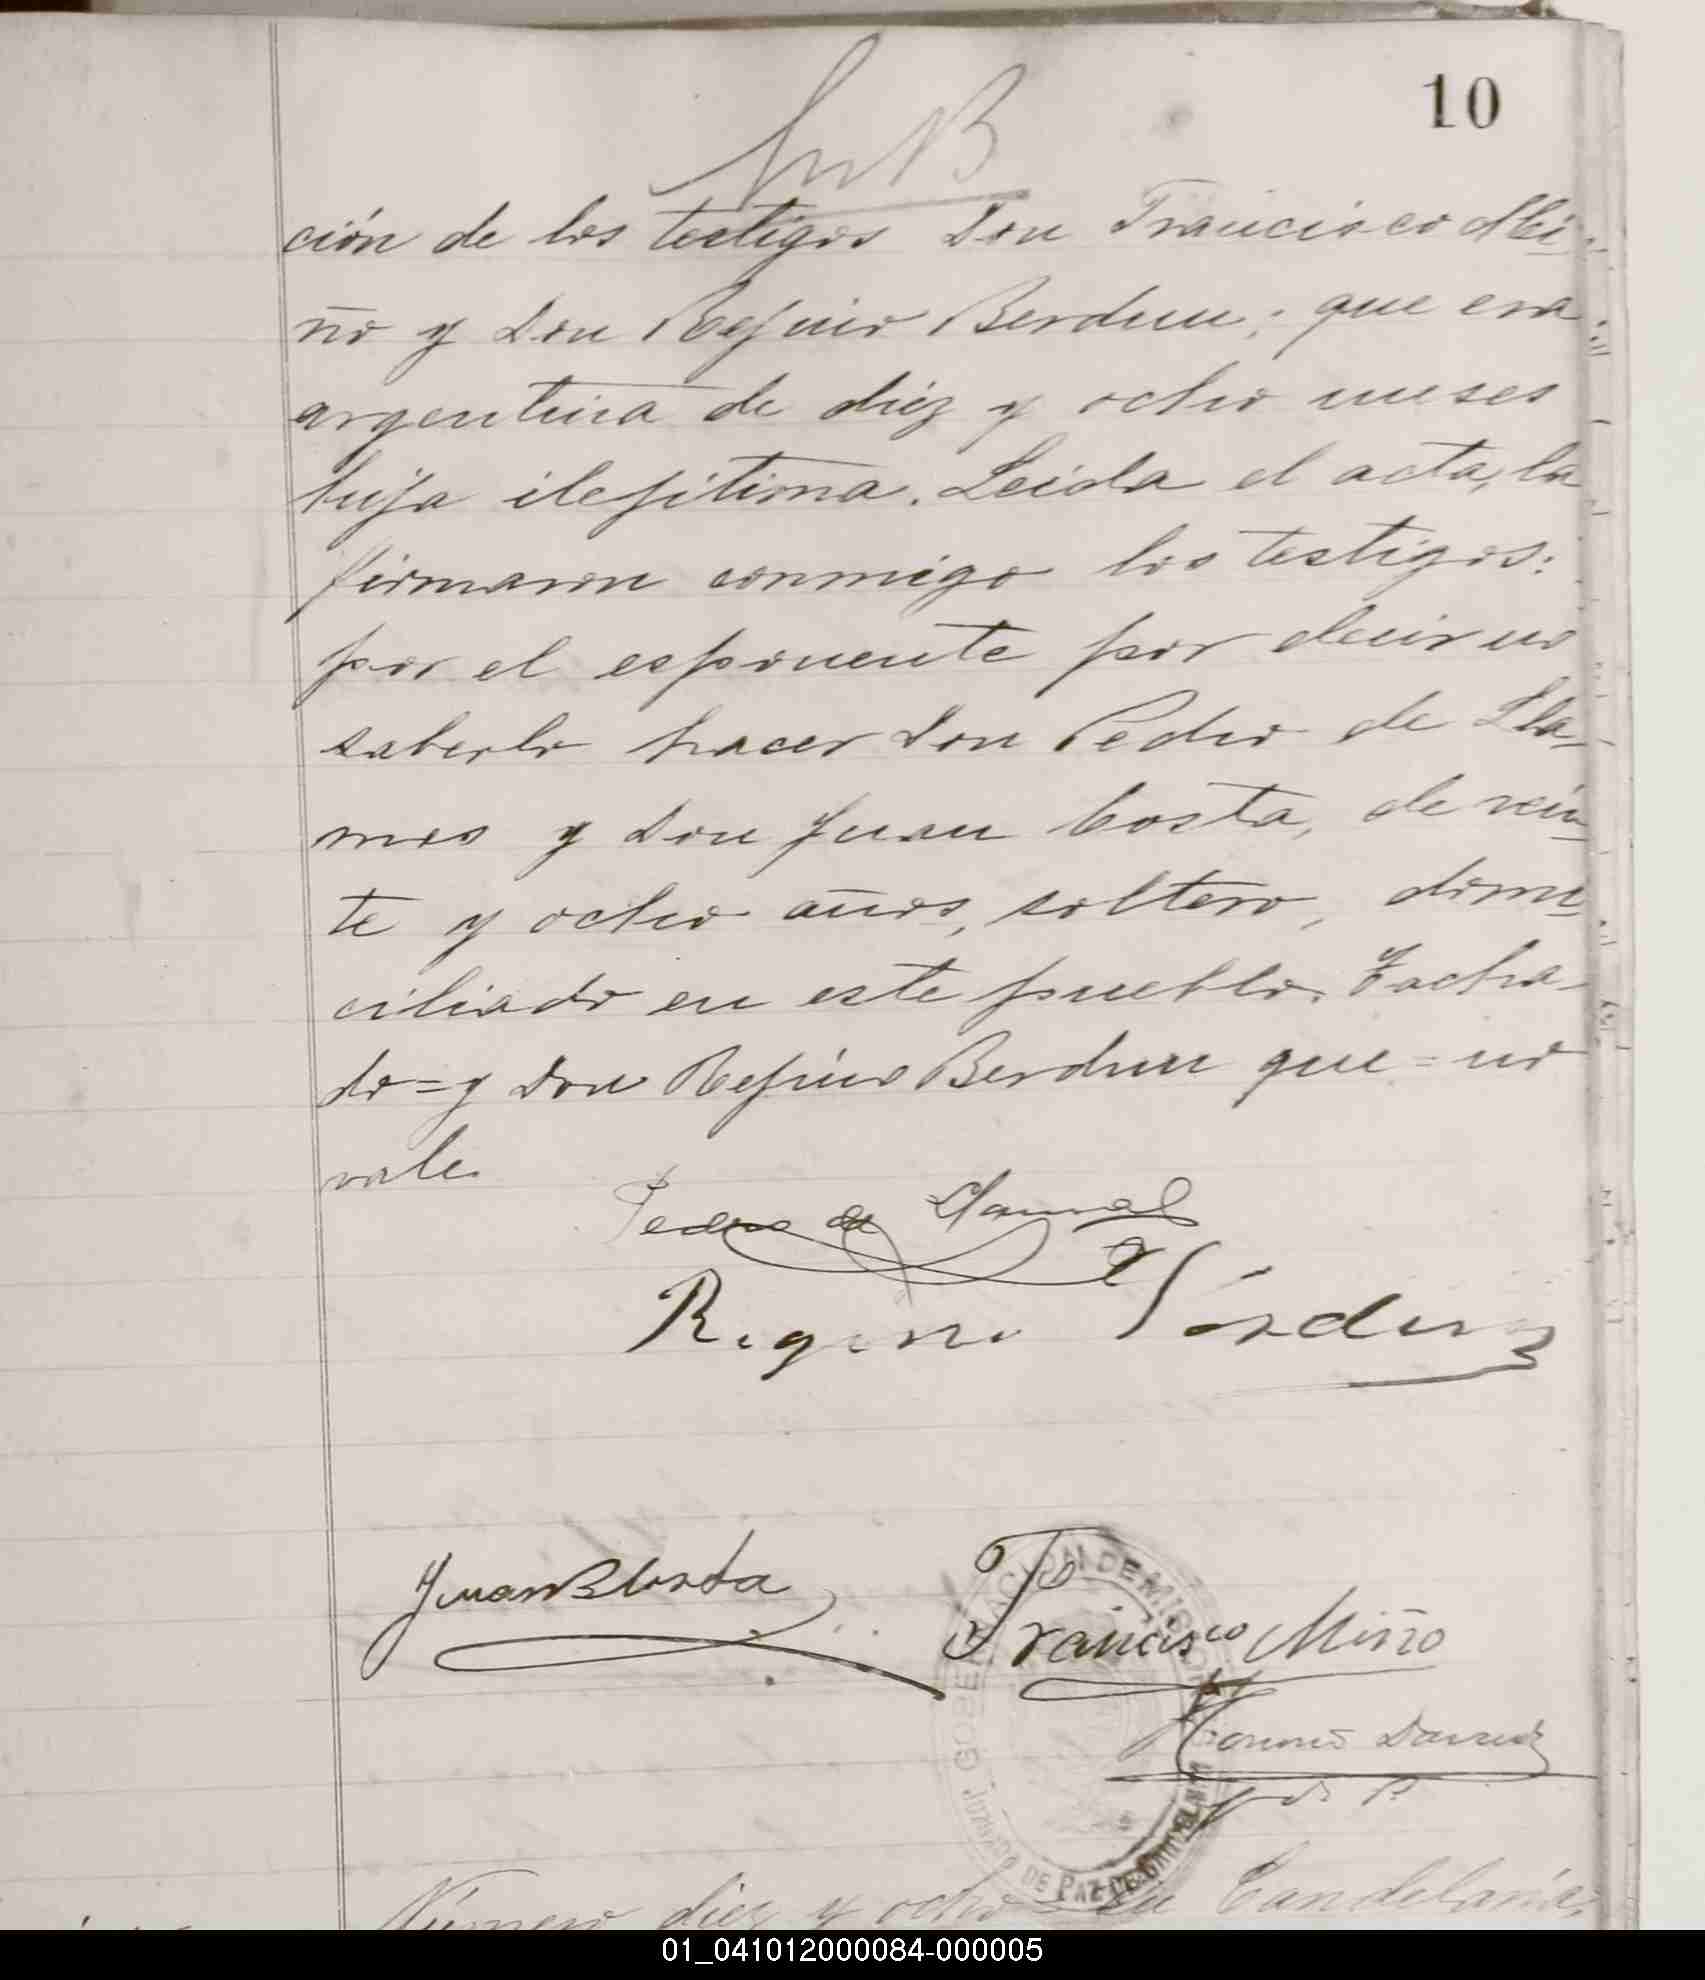 10
ción de los testigos Don Francisco Mi-
ño y Don Regino Berdun; que era
argentina de diez y ocho meses
hija ilegitima. Leida el acta, la
firmaron conmigo los testigos:
por el esponente por decir no
saberlo hacer Don Pedro de Lla-
mas y Don Juan Costa, de vein-
te y ocho años, soltero, domi-
ciliado en este pueblo. Tacha-
do=y Don Regino Berdun que=no
vale.
Pedro de Llamas
Regino Verdun
Juan B Costa
Francisco Miño
GOBERNACION DE MISIONES
JUZGADO DE PAZ DE CANDELARIA
J de P.
Número diez y ocho En Candelaria,
01_041012000084-000005